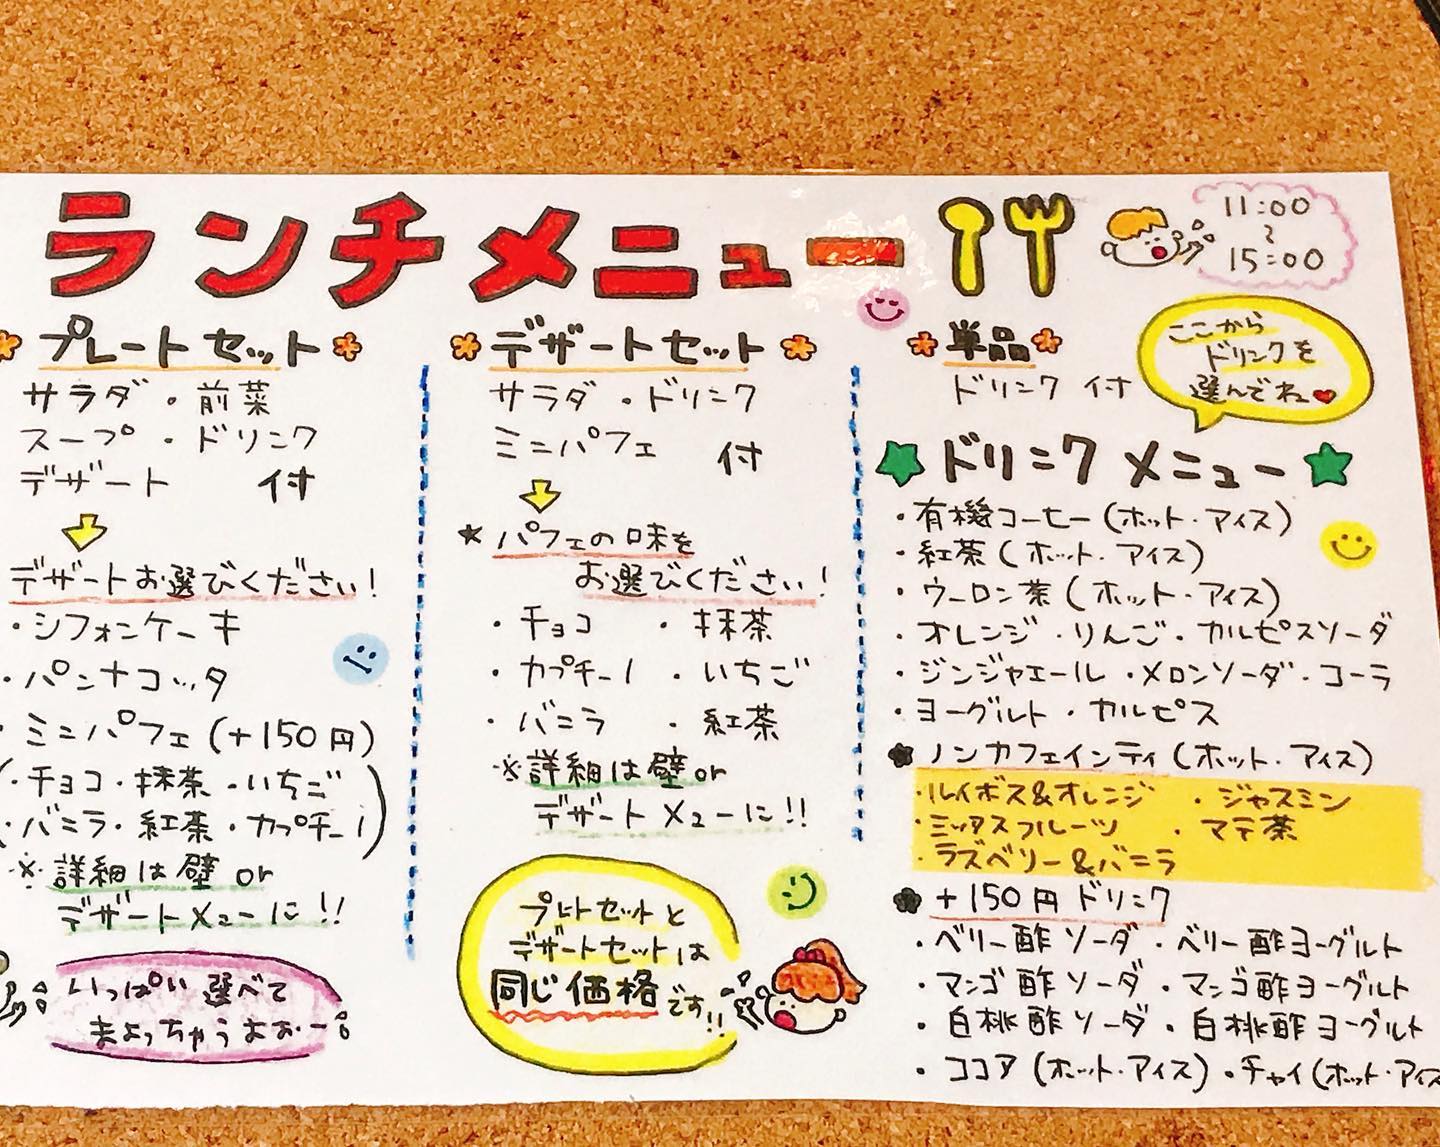 ランチメニュー
11:00
～
15:00
プレートセット
サラダ・前菜
スープ・ドリンク
デザート 付
デザートお選びください！
・シフォンケーキ
・パンナコッタ
・ミニパフェ(+150円)
(・チョコ・抹茶・いちご
・バニラ・紅茶・カプチーノ)
※詳細は壁or
デザートメニューに!!
いっぱい選べて
まよっちゃうよおー
デザートセット
サラダ・ドリンク
ミニパフェ 付
★パフェの味を
お選びください！
・チョコ ・抹茶
・カプチーノ ・いちご
・バニラ ・紅茶
※詳細は壁or
デザートメニューに!!
プレートセットと
デザートセットは
同じ価格です!!
単品
ドリンク付
ここから
ドリンクを
選んでね♥
★ドリンクメニュー★
・有機コーヒー(ホット・アイス)
・紅茶(ホット・アイス)
・ウーロン茶(ホット・アイス)
・オレンジ・りんご・カルピスソーダ
・ジンジャエール・メロンソーダ・コーラ
・ヨーグルト・カルピス
ノンカフェインティ(ホット・アイス)
・ルイボス&オレンジ ・ジャスミン
・ミックスフルーツ ・マテ茶
・ラズベリー&バニラ
+150円ドリンク
・ベリー酢ソーダ・ベリー酢ヨーグルト
・マンゴ酢ソーダ・マンゴ酢ヨーグルト
・白桃酢ソーダ・白桃酢ヨーグルト
・ココア(ホット・アイス)・チャイ(ホット・アイス